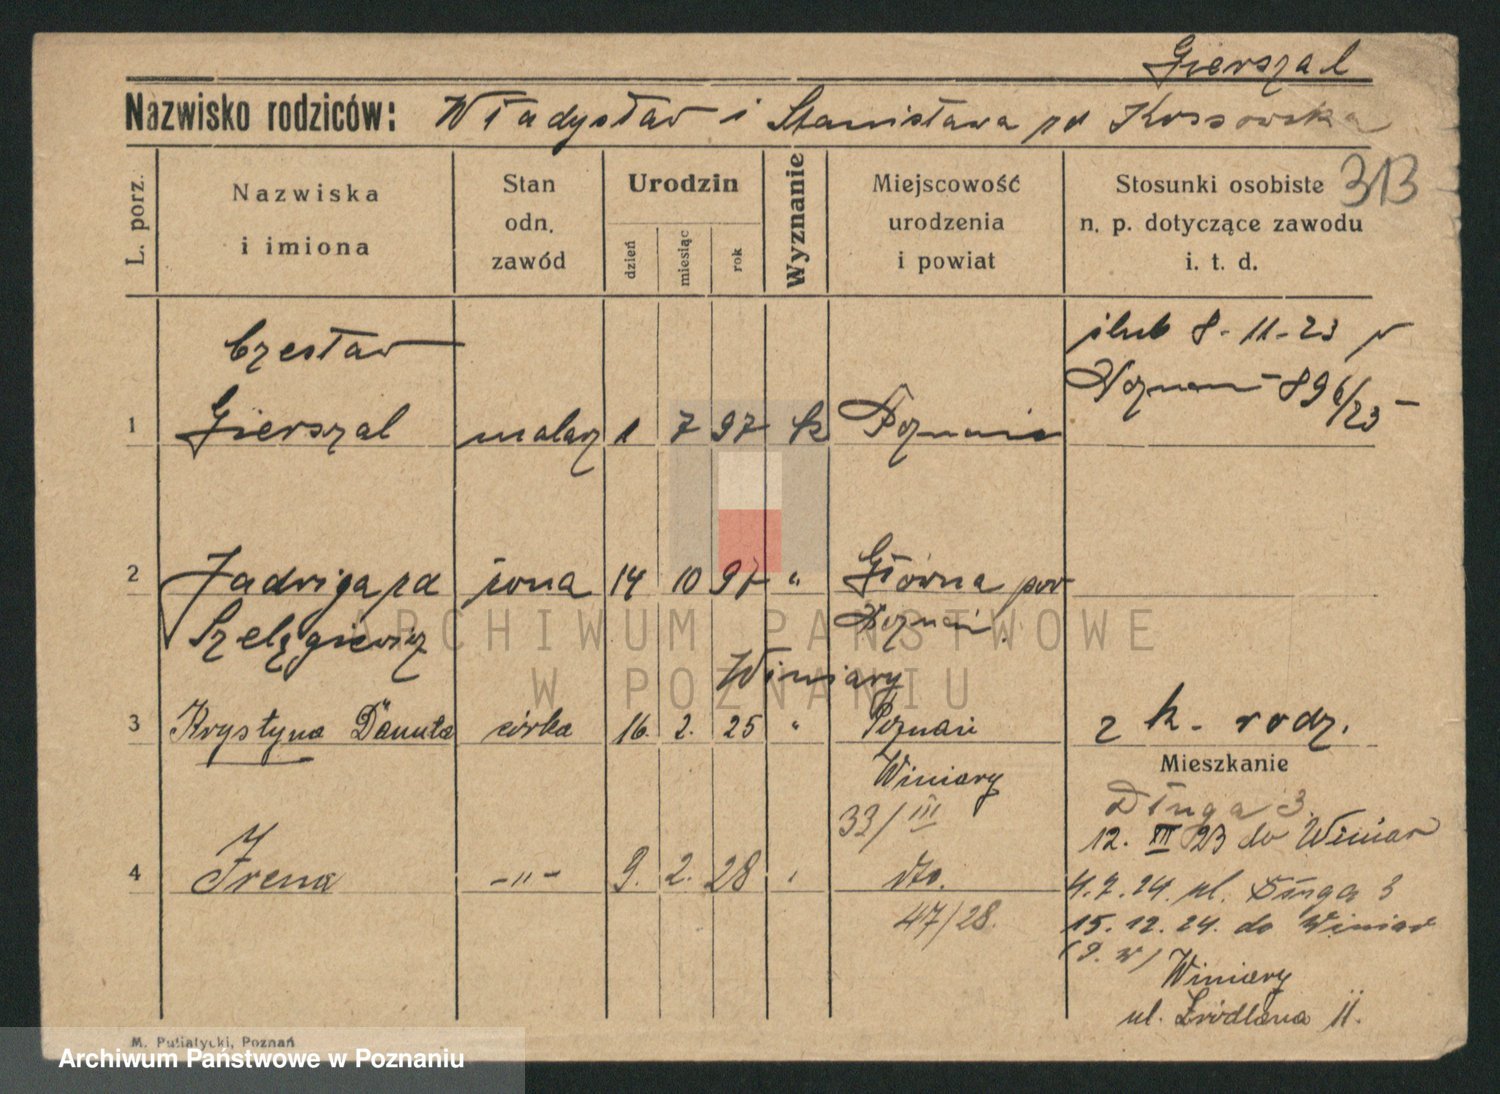 Gierszal
Nazwisko rodziców: Władysław i Stanisława zd Kossowska
313
L. porz.
Nazwiska
i imiona
Stan
odn.
zawód
Urodzin
dzień
miesiąc
rok
Wyznanie
Miejscowość
urodzenia
i powiat
Stosunki osobiste
n. p. dotyczące zawodu
i. t. d.
Czesław
ślub 8-11-23 w
Poznań 896/23
1 Gierszal malarz 1 7 97 k Poznań
2 Jadwiga zd żona 14 10 97 " Główna pow
Szelągiewicz Poznań.
Winiary
3 Krystyna Danuta córka 16. 2. 25 " Poznań z k. rodz.
Winiary
Mieszkanie
33/III
Długa 3.
12. XII 23 do Winiar
4 Irena -"- 9. 2. 28 dto.
4.7.24. ul. Długa 3
47/28.
15.12.24. do Winiar
Winiary
ul. Źródlana 11.
M. Putiatycki, Poznań
ARCHIWUM PAŃSTWOWE
W POZNANIU
Archiwum Państwowe w Poznaniu